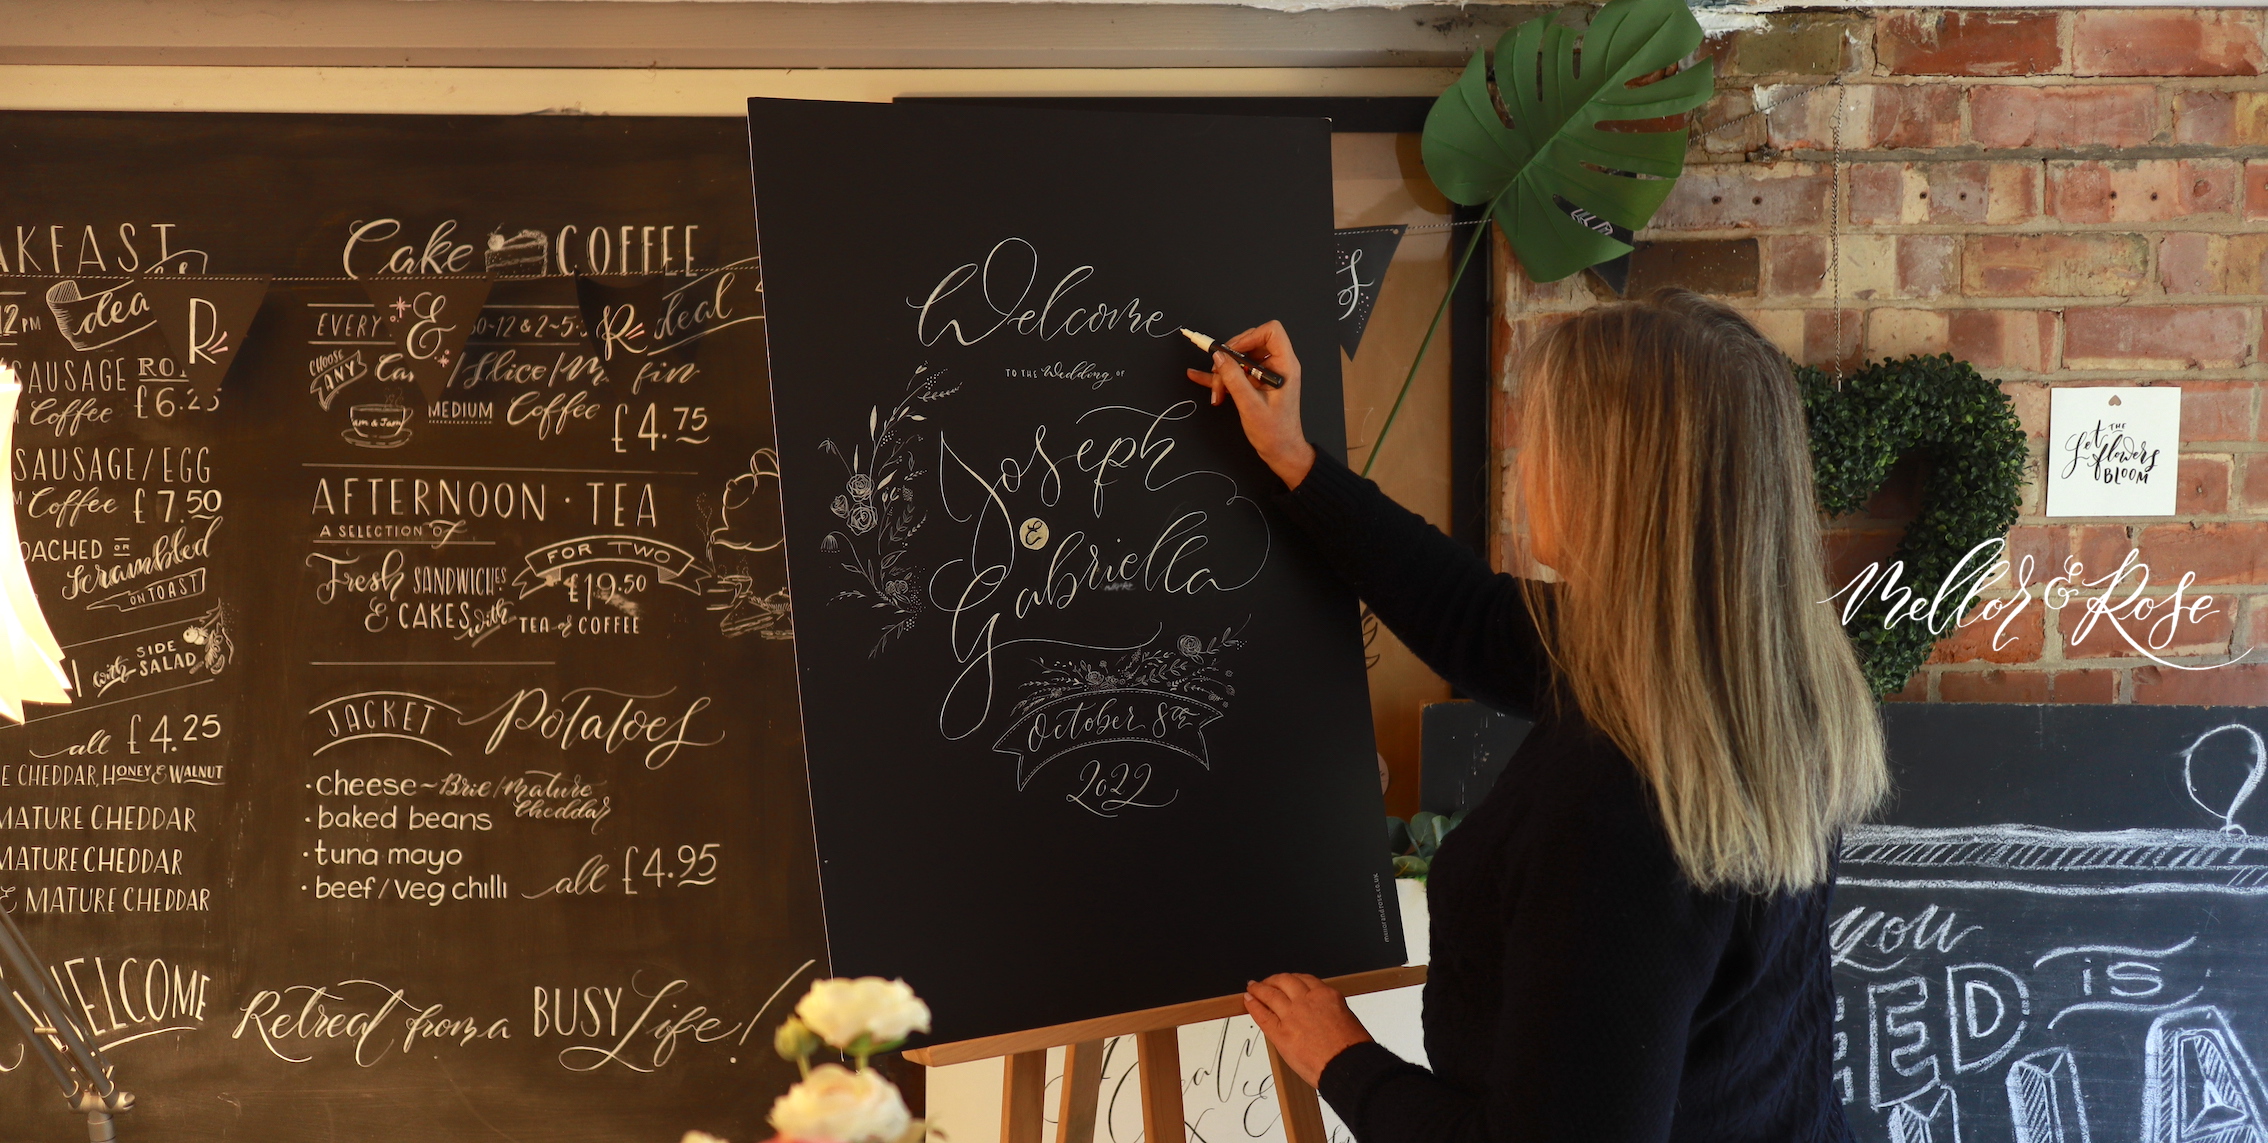 AKFAST
Idea
12 PM
SAUSAGE RO
Coffee £6.25
SAUSAGE/EGG
Coffee £7.50
OACHED OR
Scrambled
ON TOAST
with SIDE
SALAD
all £4.25
E CHEDDAR, HONEY & WALNUT
MATURE CHEDDAR
MATURE CHEDDAR
& MATURE CHEDDAR
WELCOME
R
&
R
Cake COFFEE
EVERY 30-12 & 2-5 deal
CHOOSE
ANY
/Slice/M fin
Jam & Jam
MEDIUM Coffee £4.75
AFTERNOON · TEA
A SELECTION of
Fresh SANDWICHES
& CAKES with
FOR TWO
£19.50
TEA or COFFEE
JACKET Potatoes
· cheese ~ Brie/Mature
Cheddar
· baked beans
· tuna mayo
· beef/veg chilli
all £4.95
Retreat from a BUSY Life!
Welcome
TO THE Wedding OF
Joseph
&
Gabriella
October 8th
2022
mellorandrose.co.uk
S
Let THE
flowers
BLOOM
Mellor & Rose
you
EED IS